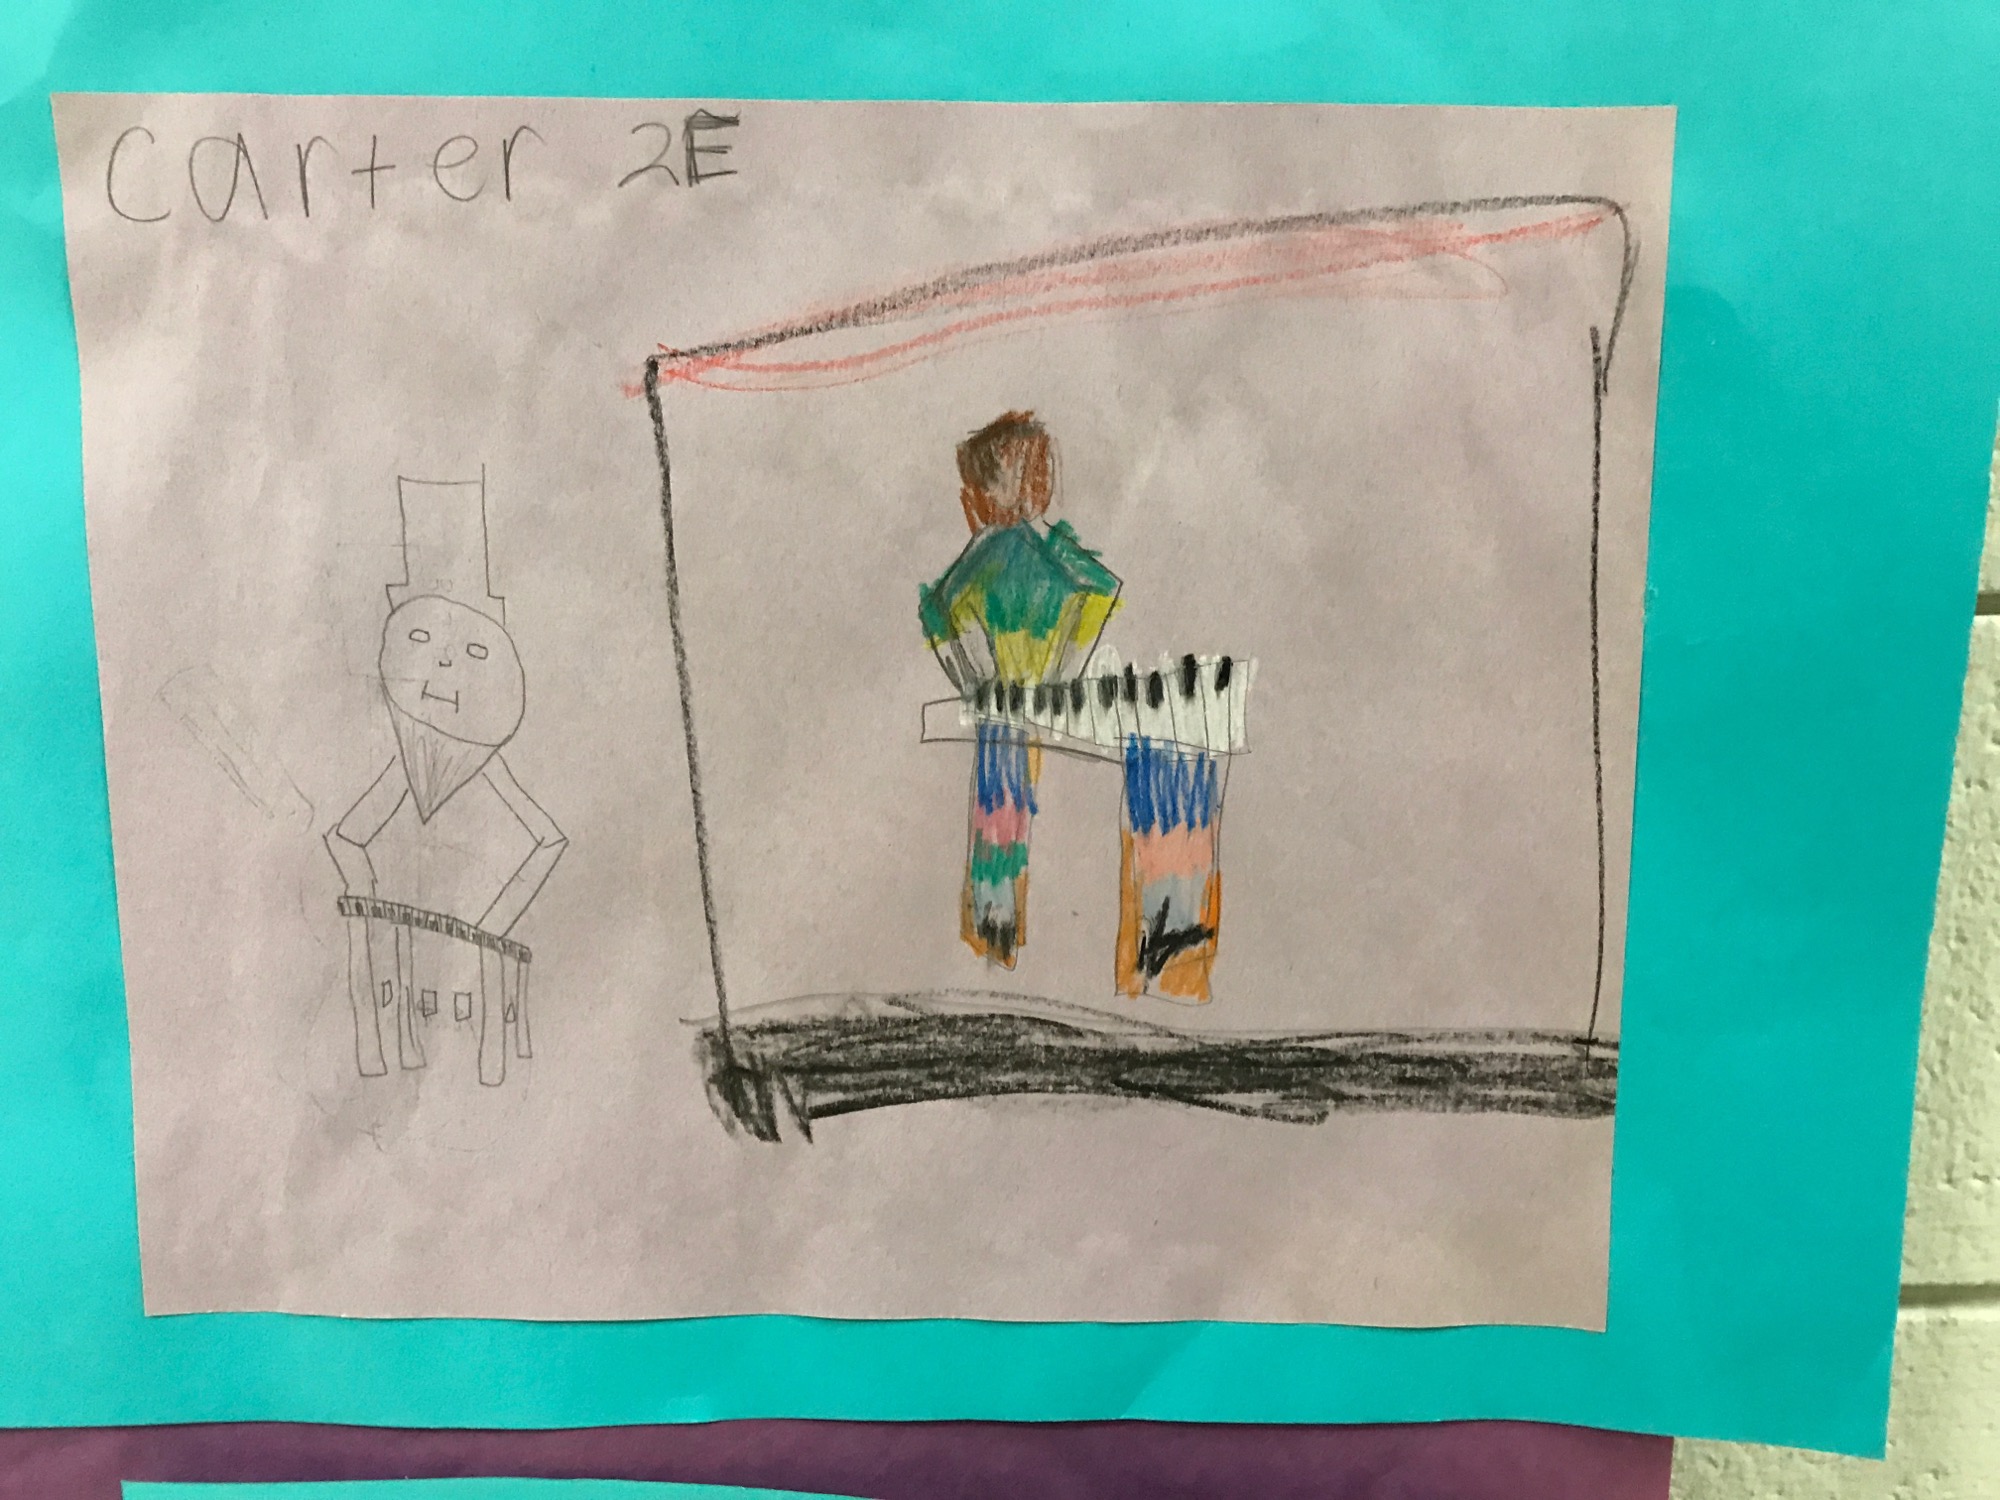 carter 2E